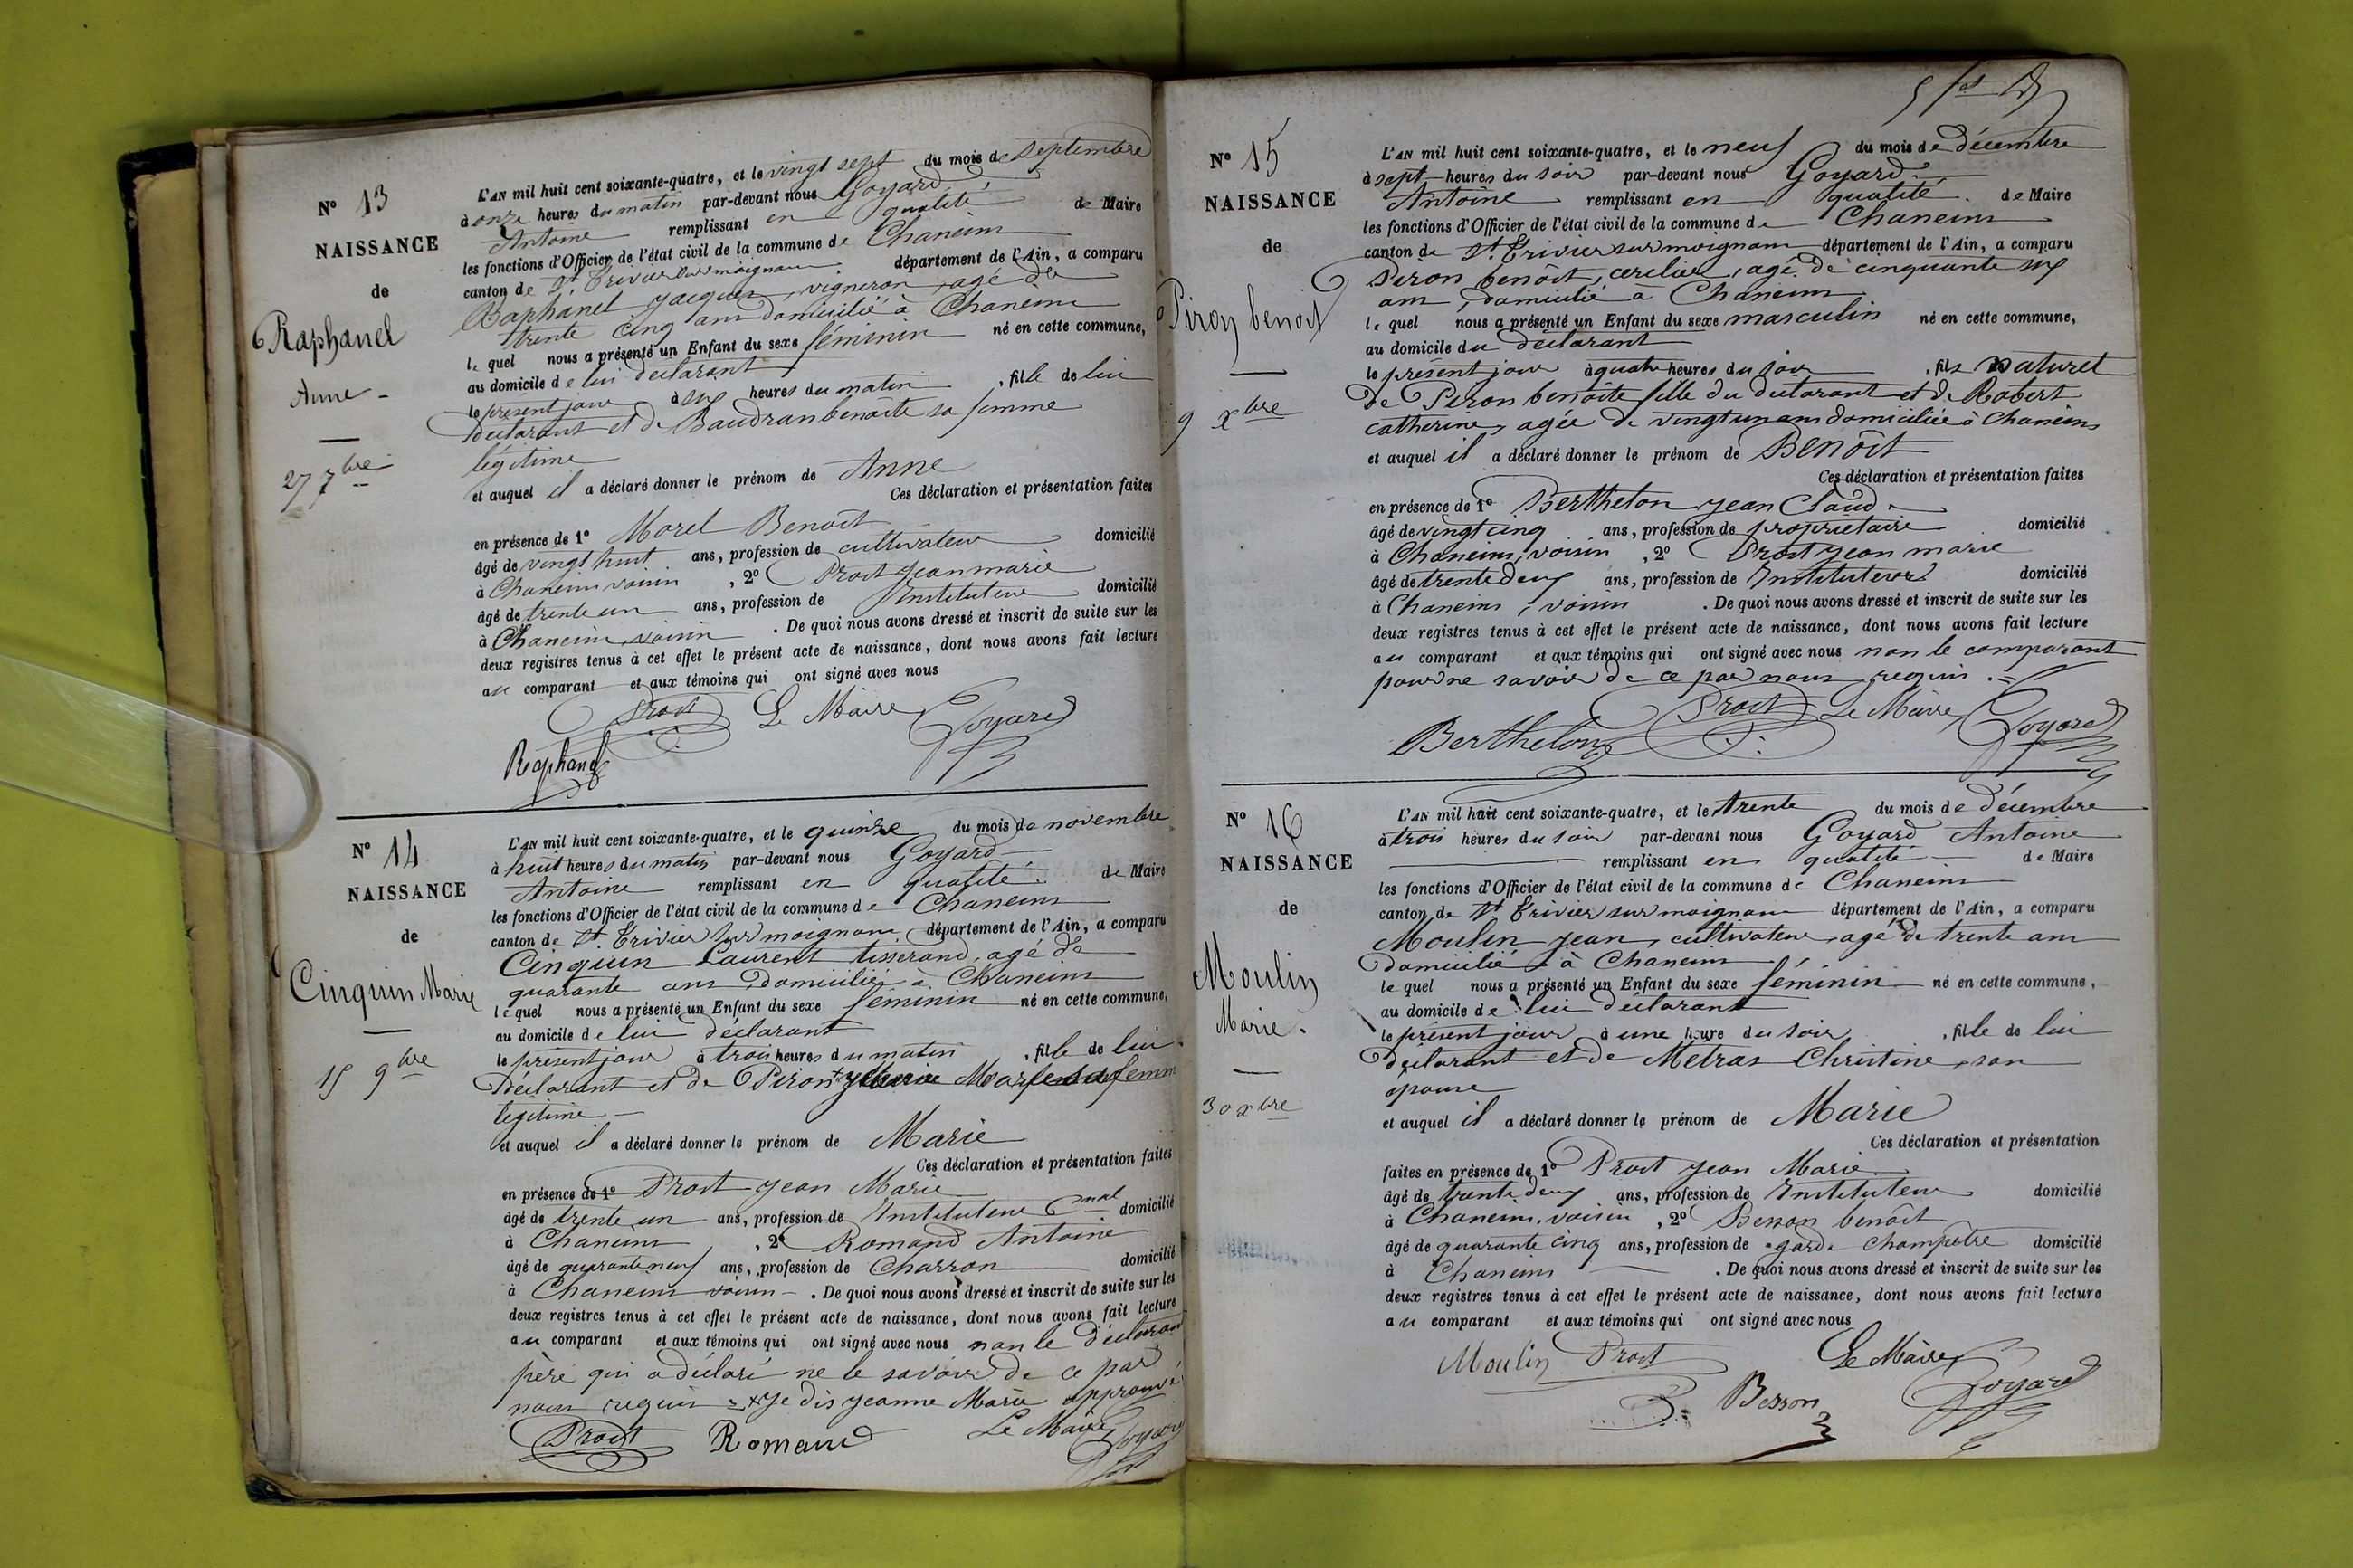 N° 13
NAISSANCE
de
Raphanel
Anne
27 7bre
L'AN mil huit cent soixante-quatre, et le vingt sept du mois de septembre
à onze heures du matin par-devant nous Goyard
Antoine remplissant en qualité de Maire
les fonctions d'Officier de l'état civil de la commune de Chaneins
canton de St Trivier sur moignans département de l'Ain, a comparu
Raphanel Jacques, vigneron, agé de
trente cinq ans domicilié à Chaneins
lequel nous a présenté un Enfant du sexe féminin né en cette commune,
au domicile de lui déclarant
le présent jour à six heures du matin, fille de lui
déclarant et de Baudran benoîte sa femme
légitime
et auquel il a déclaré donner le prénom de Anne
Ces déclaration et présentation faites
en présence de 1° Morel Benoît
âgé de vingt huit ans, profession de cultivateur domicilié
à Chaneins voisin, 2° Prost Jean marie
âgé de trente un ans, profession de Instituteur domicilié
à Chaneins, voisin. De quoi nous avons dressé et inscrit de suite sur les
deux registres tenus à cet effet le présent acte de naissance, dont nous avons fait lecture
au comparant et aux témoins qui ont signé avec nous
Prost Le Maire Goyard
Raphanel
N° 14
NAISSANCE
de
Cinquin Marie
15 9bre
L'AN mil huit cent soixante-quatre, et le quinze du mois de novembre
à huit heures du matin par-devant nous Goyard
Antoine remplissant en qualité de Maire
les fonctions d'Officier de l'état civil de la commune de Chaneins
canton de St Trivier sur moignans, département de l'Ain, a comparu
Cinquin Laurent tisserand, agé de
quarante ans, domicilié à Chaneins
lequel nous a présenté un Enfant du sexe féminin né en cette commune,
au domicile de lui déclarant
le présent jour à trois heures du matin, fille de lui
déclarant et de Piron Marie sa femme
légitime
et auquel il a déclaré donner le prénom de Marie
Ces déclaration et présentation faites
en présence de 1° Prost Jean Marie
âgé de trente un ans, profession de Instituteur Cnal domicilié
à Chaneins, 2° Romand Antoine
âgé de quarante neuf ans, profession de Charron domicilié
à Chaneins voisin. De quoi nous avons dressé et inscrit de suite sur les
deux registres tenus à cet effet le présent acte de naissance, dont nous avons fait lecture
au comparant et aux témoins qui ont signé avec nous non le déclarant
père qui a déclaré ne le savoir de ce par
nous requis = × Je dis Jeanne Marie approuvé
Prost Romand Le Maire Goyard
N° 15
NAISSANCE
de
Piron benoit
9 xbre
L'AN mil huit cent soixante-quatre, et le neuf du mois de décembre
à sept heures du soir par-devant nous Goyard
Antoine remplissant en qualité de Maire
les fonctions d'Officier de l'état civil de la commune de Chaneins
canton de St Trivier sur moignans département de l'Ain, a comparu
Piron benoît, cerclier, agé de cinquante six
ans, domicilié à Chaneins
lequel nous a présenté un Enfant du sexe masculin né en cette commune,
au domicile du déclarant
le présent jour à quatre heures du soir, fils naturel
de Piron benoîte fille du déclarant et de Robert
catherine, agée de vingt un ans domiciliée à Chaneins
et auquel il a déclaré donner le prénom de Benoît
Ces déclaration et présentation faites
en présence de 1° Berthelon Jean Claude
âgé de vingt cinq ans, profession de propriétaire domicilié
à Chaneins, voisin, 2° Prost Jean marie
âgé de trente deux ans, profession de Instituteur domicilié
à Chaneins, voisin. De quoi nous avons dressé et inscrit de suite sur les
deux registres tenus à cet effet le présent acte de naissance, dont nous avons fait lecture
au comparant et aux témoins qui ont signé avec nous non le comparant
pour ne savoir de ce par nous requis. =
Berthelon Prost Le Maire Goyard
N° 16
NAISSANCE
de
Moulin
Marie.
30 xbre
L'AN mil huit cent soixante-quatre, et le trente du mois de décembre
à trois heures du soir par-devant nous Goyard Antoine
remplissant en qualité de Maire
les fonctions d'Officier de l'état civil de la commune de Chaneins
canton de St Trivier sur moignans département de l'Ain, a comparu
Moulin Jean, cultivateur, agé de trente ans
domicilié à Chaneins
lequel nous a présenté un Enfant du sexe féminin né en cette commune,
au domicile de lui déclarant
le présent jour à une heure du soir, fille de lui
déclarant et de Métras Christine, son
épouse
et auquel il a déclaré donner le prénom de Marie
Ces déclaration et présentation
faites en présence de 1° Prost Jean Marie
âgé de trente deux ans, profession de Instituteur domicilié
à Chaneins, voisin, 2° Besson benoît
âgé de quarante cinq ans, profession de garde champêtre domicilié
à Chaneins. De quoi nous avons dressé et inscrit de suite sur les
deux registres tenus à cet effet le présent acte de naissance, dont nous avons fait lecture
au comparant et aux témoins qui ont signé avec nous
Moulin Prost Le Maire
Besson Goyard